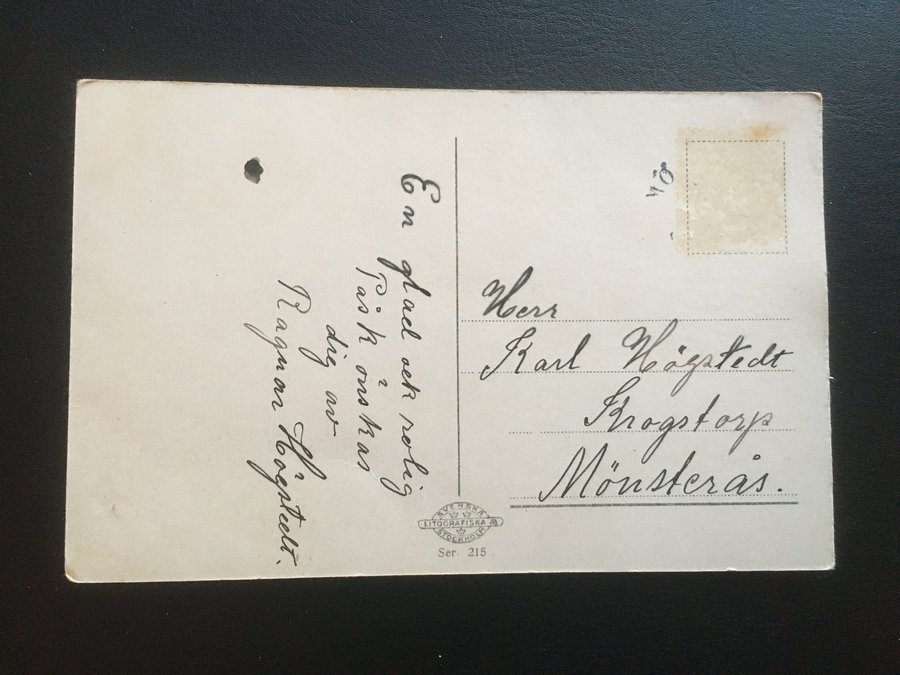 En glad ock rolig
Påsk önskas
dig av
Ragnar Högstedt.
Herr
Karl Högstedt
Krogstorp
Mönsterås.
SVENSKA
LITOGRAFISKA AB
STOCKHOLM
Ser. 215